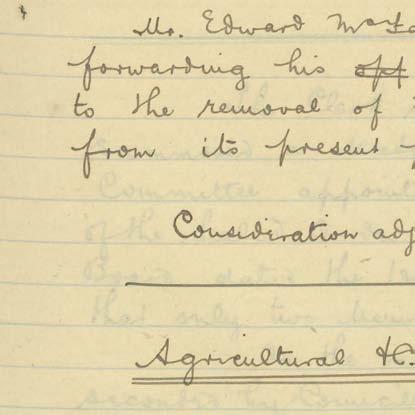 Mr. Edward McFa
forwarding his opp
to the removal of
from its present
Consideration adj
Agricultural &c.